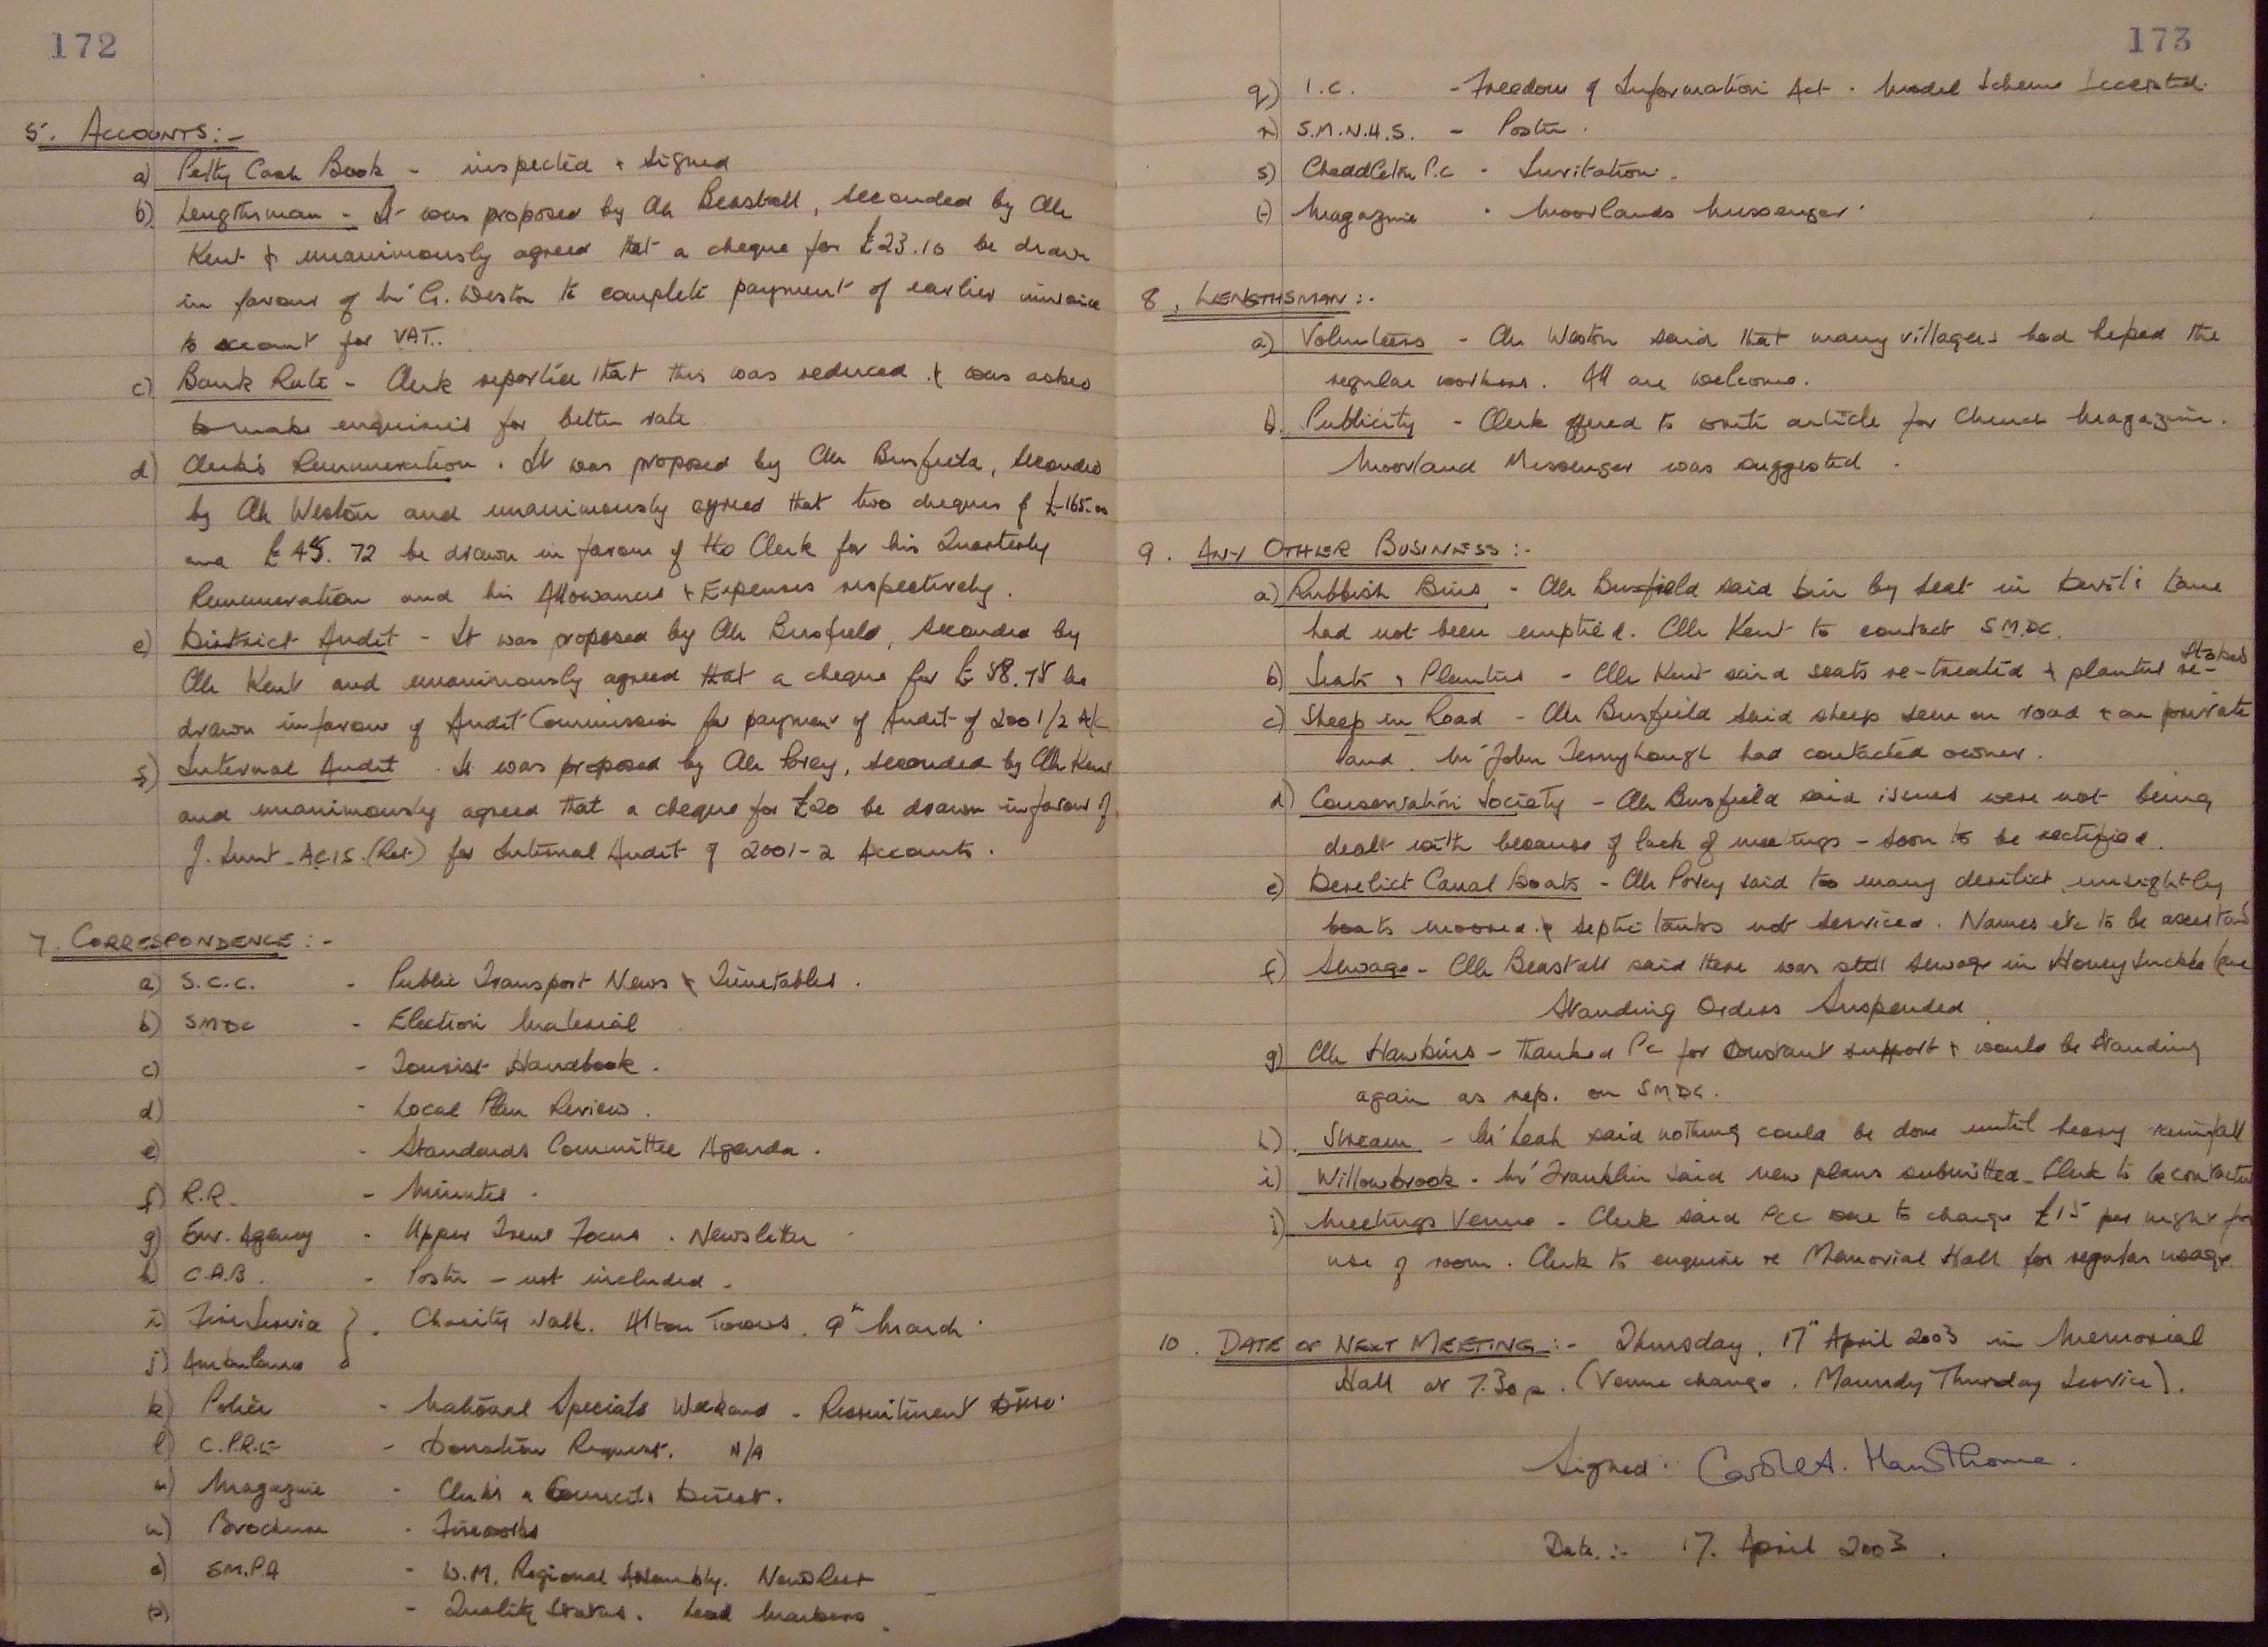 172
5. ACCOUNTS:-
a) Petty Cash Book - inspected + signed
b) Lengthsman - It was proposed by Cllr Beastall, seconded by Cllr
Kent & unanimously agreed that a cheque for £23.10 be drawn
in favour of Mr G. Weston to complete payment of earlier invoice
to account for VAT.
c) Bank Rate - Clerk reported that this was reduced & was asked
to make enquiries for better rate
d) Clerk's Remuneration. It was proposed by Cllr Busfield, seconded
by Cllr Weston and unanimously agreed that two cheques of £165.00
and £45.72 be drawn in favour of the Clerk for his Quarterly
Remuneration and his Allowances + Expenses respectively.
e) District Audit - It was proposed by Cllr Busfield, seconded by
Cllr Kent and unanimously agreed that a cheque for £58.75 be
drawn in favour of Audit Commission for payment of Audit of 2001/2 A/C
f) Internal Audit. It was proposed by Cllr Povey, seconded by Cllr Kent
and unanimously agreed that a cheque for £20 be drawn in favour of
J. Lunt ACIS (Ret) for Internal Audit of 2001-2 Accounts.
7. CORRESPONDENCE:-
a) S.C.C. - Public Transport News & Timetables.
b) SMDC - Election Material
c) - Tourist Handbook.
d) - Local Plan Review.
e) - Standards Committee Agenda.
f) R.R. - Minutes.
g) Env. Agency - Upper Trent Focus. Newsletter
h) C.A.B. - Poster - not included.
i) Fire Service } - Charity Walk. Alton Towers. 9th March.
j) Ambulance
k) Police - National Specials Weekend - Recruitment Drive.
l) C.P.R.E - Donation Request. N/A
m) Magazine - Clerks & Councils Direct.
n) Brochure - Fireworks
o) SM.P.A - W.M. Regional Assembly. News
p) - Quality Status. Lead Markers
173
q) I.C. - Freedom of Information Act. Model Scheme accepted.
r) S.M.N.H.S. - Poster.
s) Cheddleton P.C - Invitation.
t) Magazine - Moorlands Messenger.
8. LENGTHSMAN:-
a) Volunteers - Cllr Weston said that many villagers had helped the
regular workers. All are welcome.
b. Publicity - Clerk offered to write article for Church Magazine.
Moorland Messenger was suggested.
9. ANY OTHER BUSINESS:-
a) Rubbish Bins - Cllr Busfield said bin by seat in Devil's Lane
had not been emptied. Cllr Kent to contact SMDC.
b) Seats & Planters - Cllr Kent said seats re-treated & planter re-
staked
c) Sheep in Road - Cllr Busfield said sheep seen on road + on private
land. Mr John Tennyhough had contacted owner.
d) Conservation Society - Cllr Busfield said issues were not being
dealt with because of lack of meetings - soon to be rectified.
e) Derelict Canal Boats - Cllr Povey said too many derelict, unsightly
boats moored & septic tanks not serviced. Names etc to be
f) Sewage - Cllr Beastall said there was still sewage in Honeysuckle Lane
Standing Orders Suspended
g) Cllr Hawkins - Thanked PC for constant support + would be standing
again as rep. on SMDC.
h). Stream - Mr Leah said nothing could be done until heavy rainfall
i) Willowbrook - Mr Franklin said new plans submitted. Clerk to be contacted
j) Meetings Venue - Clerk said PCC were to charge £15 per night for
use of room. Clerk to enquire re Memorial Hall for regular usage.
10. DATE OF NEXT MEETING:- Thursday, 17th April 2003 in Memorial
Hall at 7.30p. (Venue change. Maundy Thursday Service).
Signed: Carole A. Hawthorne.
Date:- 17. April 2003.